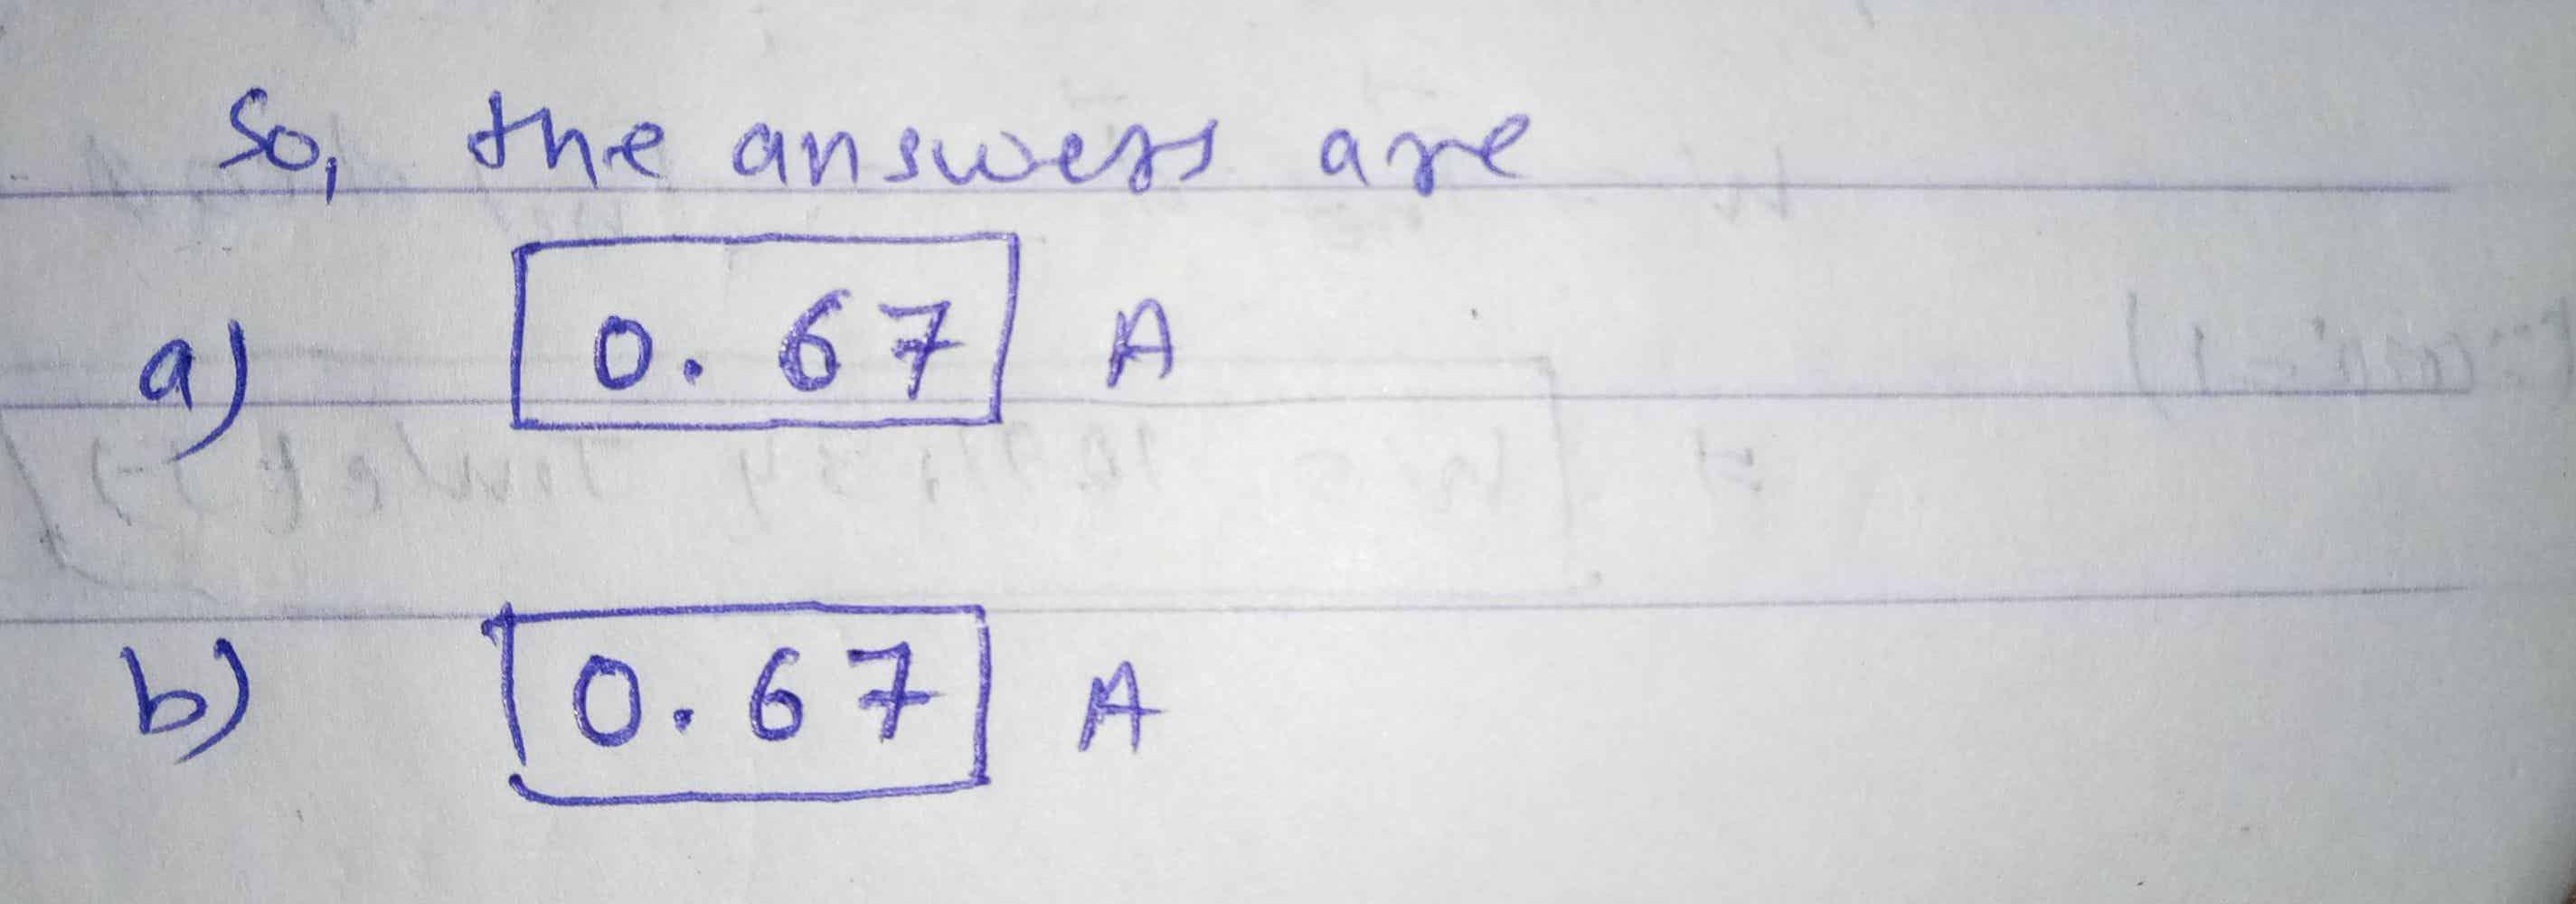 So, the answers are
a) 0.67 A
b) 0.67 A